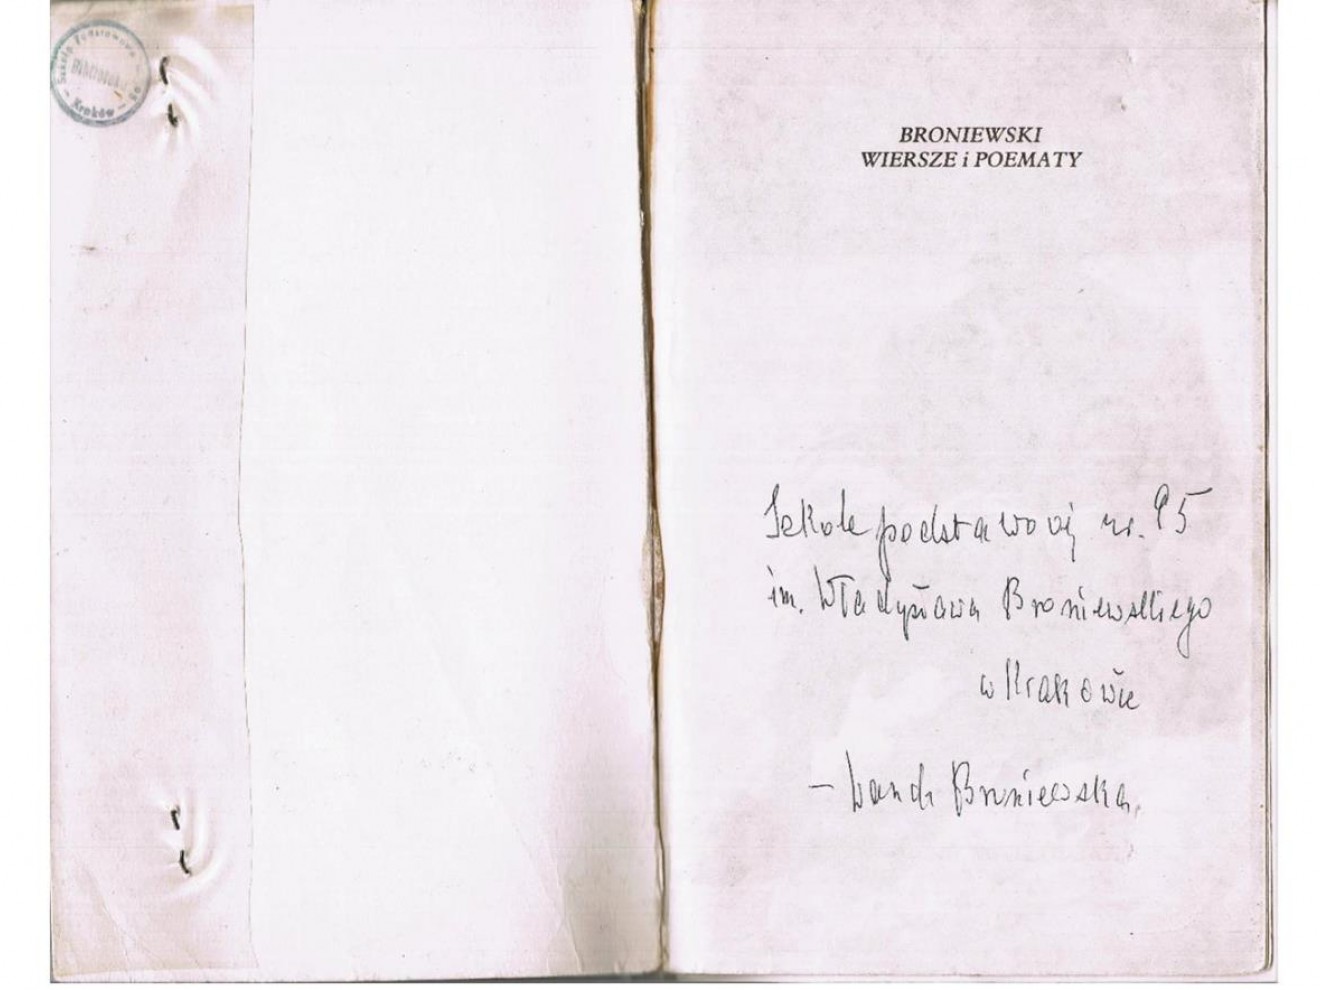 Szkoła Podstawowa
Kraków
BRONIEWSKI
WIERSZE i POEMATY
Szkole podstawowej nr. 95
im. Władysława Broniewskiego
w Krakowie
– Wanda Broniewska